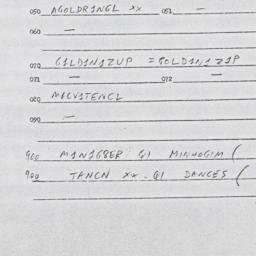 050 AGOLDRINGL xx 051 —
060 —
070 GILDINIZUP = GOLDINIZIP
071 — 072 —
080 MACVITENCL
090 —
900 MINIGSER QI MINHOGIM (
900 TANCN xx. QI DANCES (